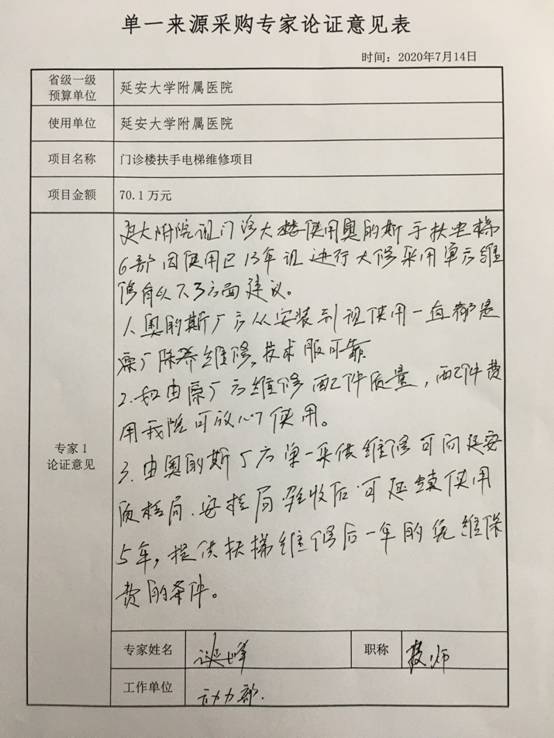 单一来源采购专家论证意见表
时间：2020年7月14日
省级一级
预算单位
延安大学附属医院
使用单位
延安大学附属医院
项目名称
门诊楼扶手电梯维修项目
项目金额
70.1万元
专家1
论证意见
延大附院现门诊大楼使用奥的斯手扶电梯
6部因使用已13年现进行大修采用单方维
修有以下3方面建议。
1、奥的斯厂方从安装到现使用一直都是
原厂保养维修，技术服可靠
2、由原厂方维修配件质量，配件费
用我院可放心使用。
3、由奥的斯厂方单一来供维修可向延安
质检局、安检局验收后可延续使用
5年，提供扶梯维修后一年的免维保
费的条件。
专家姓名
职称
技师
工作单位
动力部.